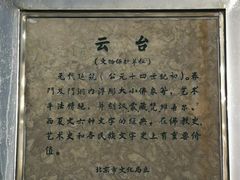 云台
(文物保护单位)
元代建筑(公元十四世纪初)。券
门及门洞内浮雕大小佛象等，艺术
手法精纯，并刻汉蒙藏梵维吾尔、
西夏文六种文字的经典，在佛教史，
艺术史和各民族文字史上有重要价
值。
北京市文化局立